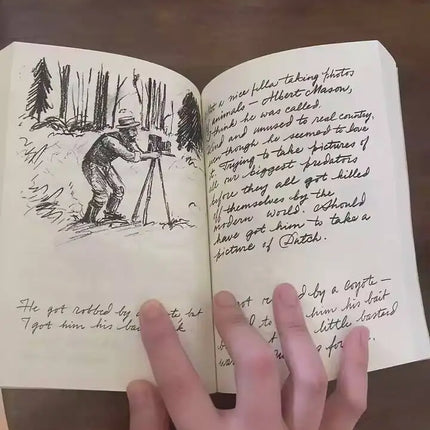 He got robbed by a
I got him his
a nice fella taking photos
animals – Albert Mason,
think he was called.
Kind and unused to real country,
even though he seemed to love
it. Trying to take pictures of
all our biggest predators
before they all got killed
off themselves by the
modern world. I should
have got him to take a
picture of Dutch.
got by a coyote –
him his bait
little bastard